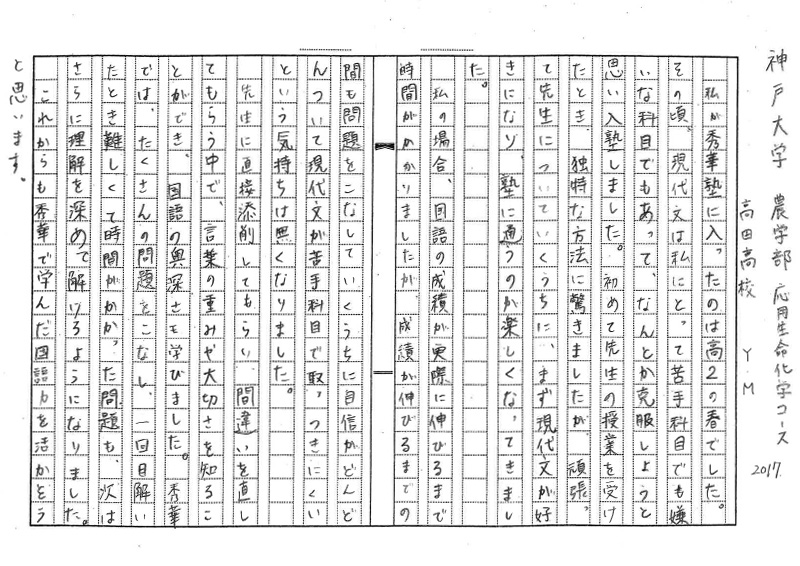 神戸大学 農学部 応用生命化学コース
2017
高田高校 YM
私が秀華塾に入ったのは高2の春でした。
その頃、現代文は私にとって苦手科目でも嫌
いな科目でもあって、なんとか克服しようと
思い入塾しました。初めて先生の授業を受け
たとき、独特な方法に驚きましたが、頑張っ
て先生についていくうちに、まず現代文が好
きになり、塾に通うのが楽しくなってきまし
た。
私の場合、国語の成績が実際に伸びるまで
時間がかかりましたが、成績が伸びるまでの
間も問題をこなしていくうちに自信がどんど
んついて現代文が苦手科目で取っつきにくい
という気持ちは無くなりました。
先生に直接添削してもらい、間違いを直し
てもらう中で、言葉の重みや大切さを知るこ
とができ、国語の奥深さも学びました。秀華
では、たくさんの問題をこなし、一回目解い
たとき難しくて時間がかかった問題も、次は
さらに理解を深めて解けるようになりました。
これからも秀華で学んだ国語力を活かそう
と思います。